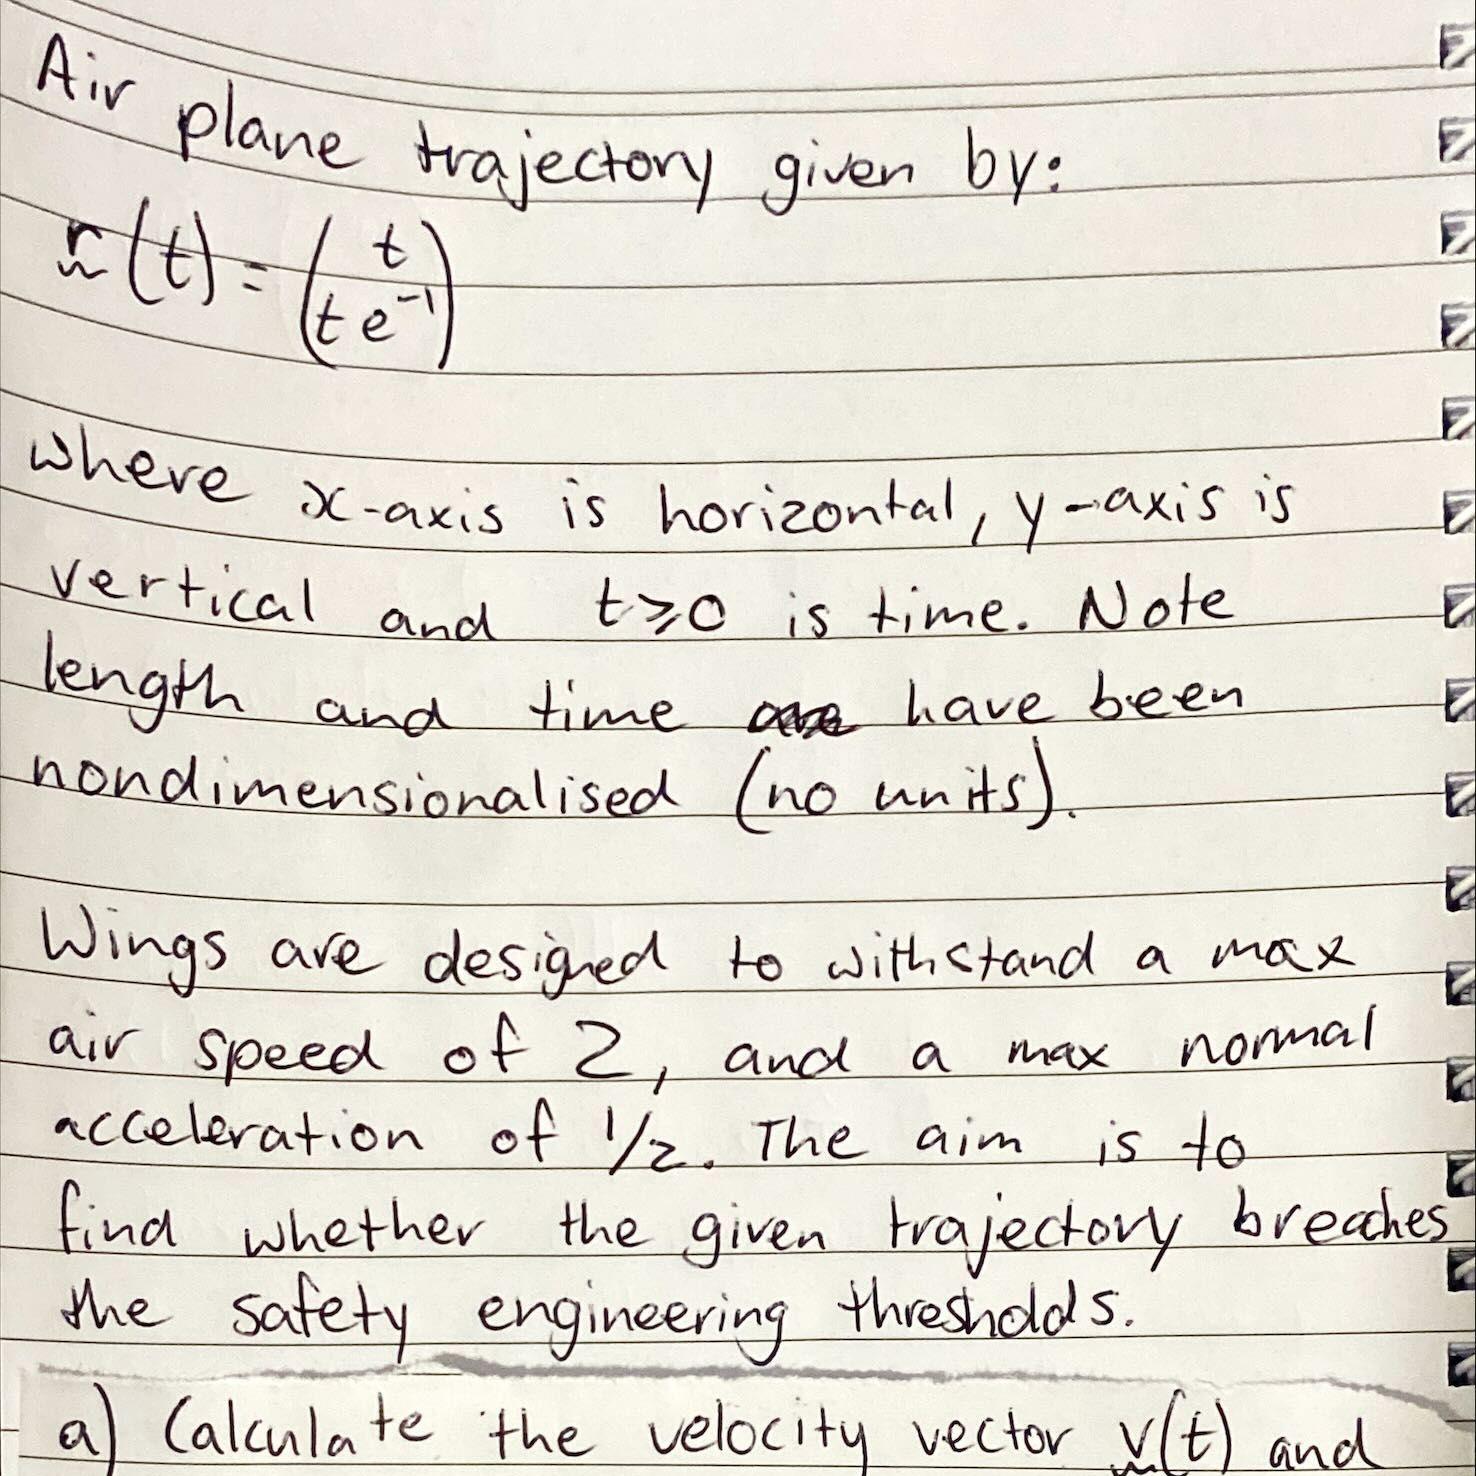 Air plane trajectory given by:
r(t) = (t
t e⁻¹)
where x-axis is horizontal, y-axis is
vertical and t⩾0 is time. Note
length and time have been
nondimensionalised (no units).
Wings are designed to withstand a max
air speed of 2, and a max normal
acceleration of 1/2. The aim is to
find whether the given trajectory breaches
the safety engineering thresholds.
a) Calculate the velocity vector v(t) and